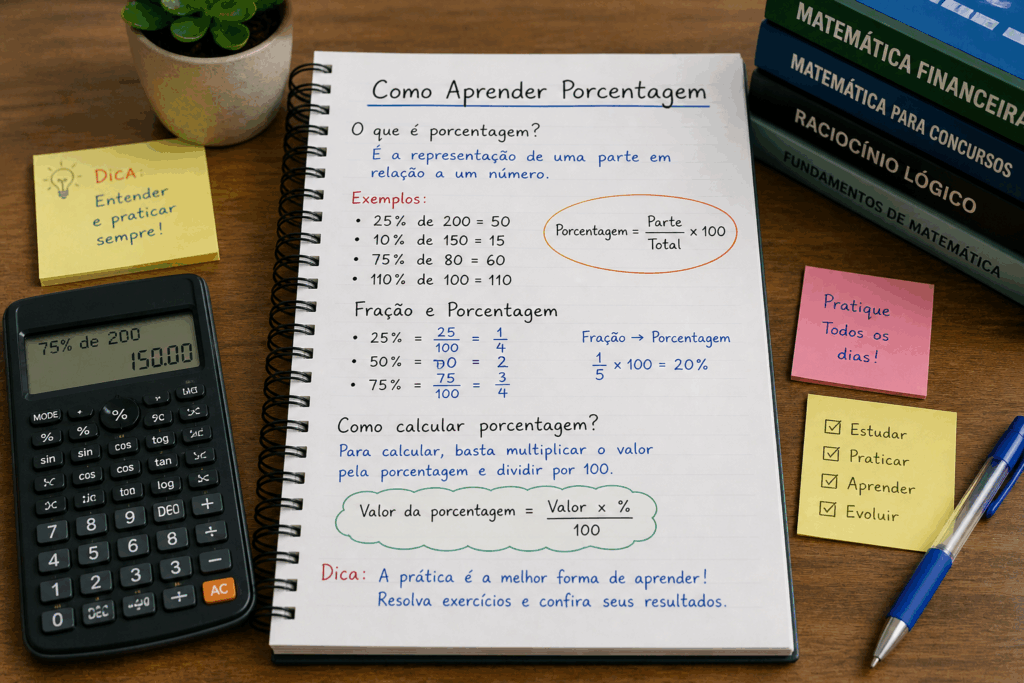 Como Aprender Porcentagem
O que é porcentagem?
É a representação de uma parte em
relação a um número.
Exemplos:
• 25% de 200 = 50
• 10% de 150 = 15
• 75% de 80 = 60
• 110% de 100 = 110
Porcentagem = Parte / Total x 100
Fração e Porcentagem
• 25% = 25/100 = 1/4
• 50% = = 2
• 75% = 75/100 = 3/4
Fração → Porcentagem
1/5 x 100 = 20%
Como calcular porcentagem?
Para calcular, basta multiplicar o valor
pela porcentagem e dividir por 100.
Valor da porcentagem = Valor x % / 100
Dica: A prática é a melhor forma de aprender!
Resolva exercícios e confira seus resultados.
DICA:
Entender
e praticar
sempre!
75% de 200
150.00
MODE %
% %
sin sin cos tog
cos cos tan
ton log
7 8 9 DEO +
4 5 6 8 −
1 2 3 3
0 ÷ AC
MATEMÁTICA FINANCEIRA
MATEMÁTICA PARA CONCURSOS
RACIOCÍNIO LÓGICO
FUNDAMENTOS DE MATEMÁTICA
Pratique
Todos os
dias!
☑ Estudar
☑ Praticar
☑ Aprender
☑ Evoluir